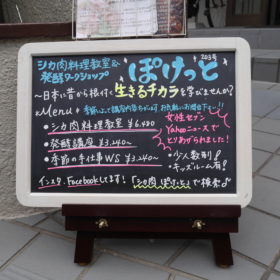 シカ肉料理教室&
発酵ワークショップ
ぽけっと
203号
〜日本に昔から根付く 生きるチカラを学びませんか?
*Menu*
・シカ肉料理教室 ¥6,480
・発酵講座 ¥3,240〜
・季節の手仕事WS ¥3,240〜
女性セブン
Yahooニュースで
とりあげられました!
・少人数制♪
・キッズルーム有!
インスタ、Facebookしてます!「シカ肉 ぽけっと」で検索♪